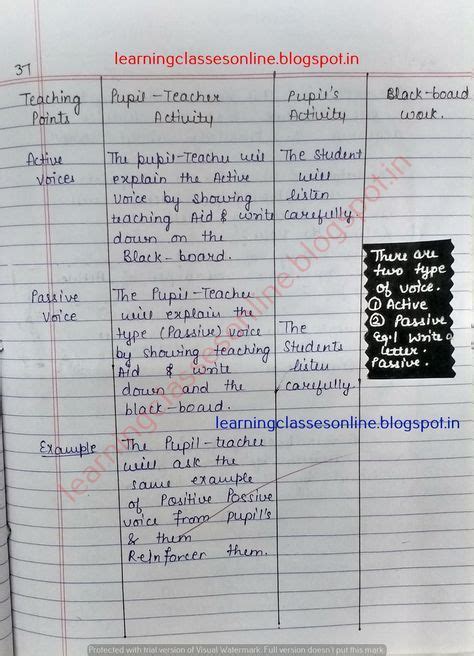 learningclassesonline.blogspot.in
37
Teaching Points
Pupil-Teacher Activity
Pupil's Activity
Black-board work.
Active Voices
The pupil-Teacher will
explain the Active
voice by showing
teaching Aid & write
down on the
Black-board.
The Student
will
listen
carefully
There are
two type
of voice.
① Active
② Passive
Eg.1 Write a
letter.
Passive.
Passive Voice
The Pupil-Teacher
will explain the
type (Passive) voice
by showing teaching
Aid & write
down and the
black-board.
The
Students
listen
carefully
learningclassesonline.blogspot.in
Example
The Pupil-teacher
will ask the
same example
of Positive Possive
voice from pupil's
& them
Reinforcer them.
learningclassesonline.blogspot.in
Protected with trial version of Visual Watermark. Full version doesn't put this mark.